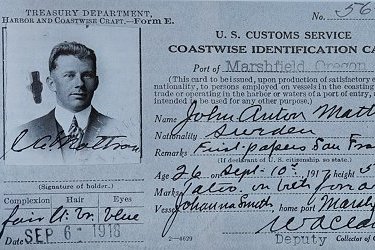 TREASURY DEPARTMENT,
HARBOR AND COASTWISE CRAFT.—FORM E.
No. 56
U. S. CUSTOMS SERVICE
COASTWISE IDENTIFICATION CA
Port of Marshfield, Oregon
(This card to be issued, upon production of satisfactory e
nationality, to persons employed on vessels in the coasting
trade or operating in the harbor or waters of a port of entry,
intended to be used for any other purpose.)
Name John Anton Matt
Nationality Sweden
Remarks First papers San Fra
(If declarant of U. S. citizenship, so state.)
Age 26 Sept-10th 191 height 5
Marks Tatoo. on both
Vessel Johanna Smith home port Marsh
Deputy Collector of C
2—4629
C A Mattson
(Signature of holder.)
Complexion Hair Eyes
fair blue
Date SEP 6 1918